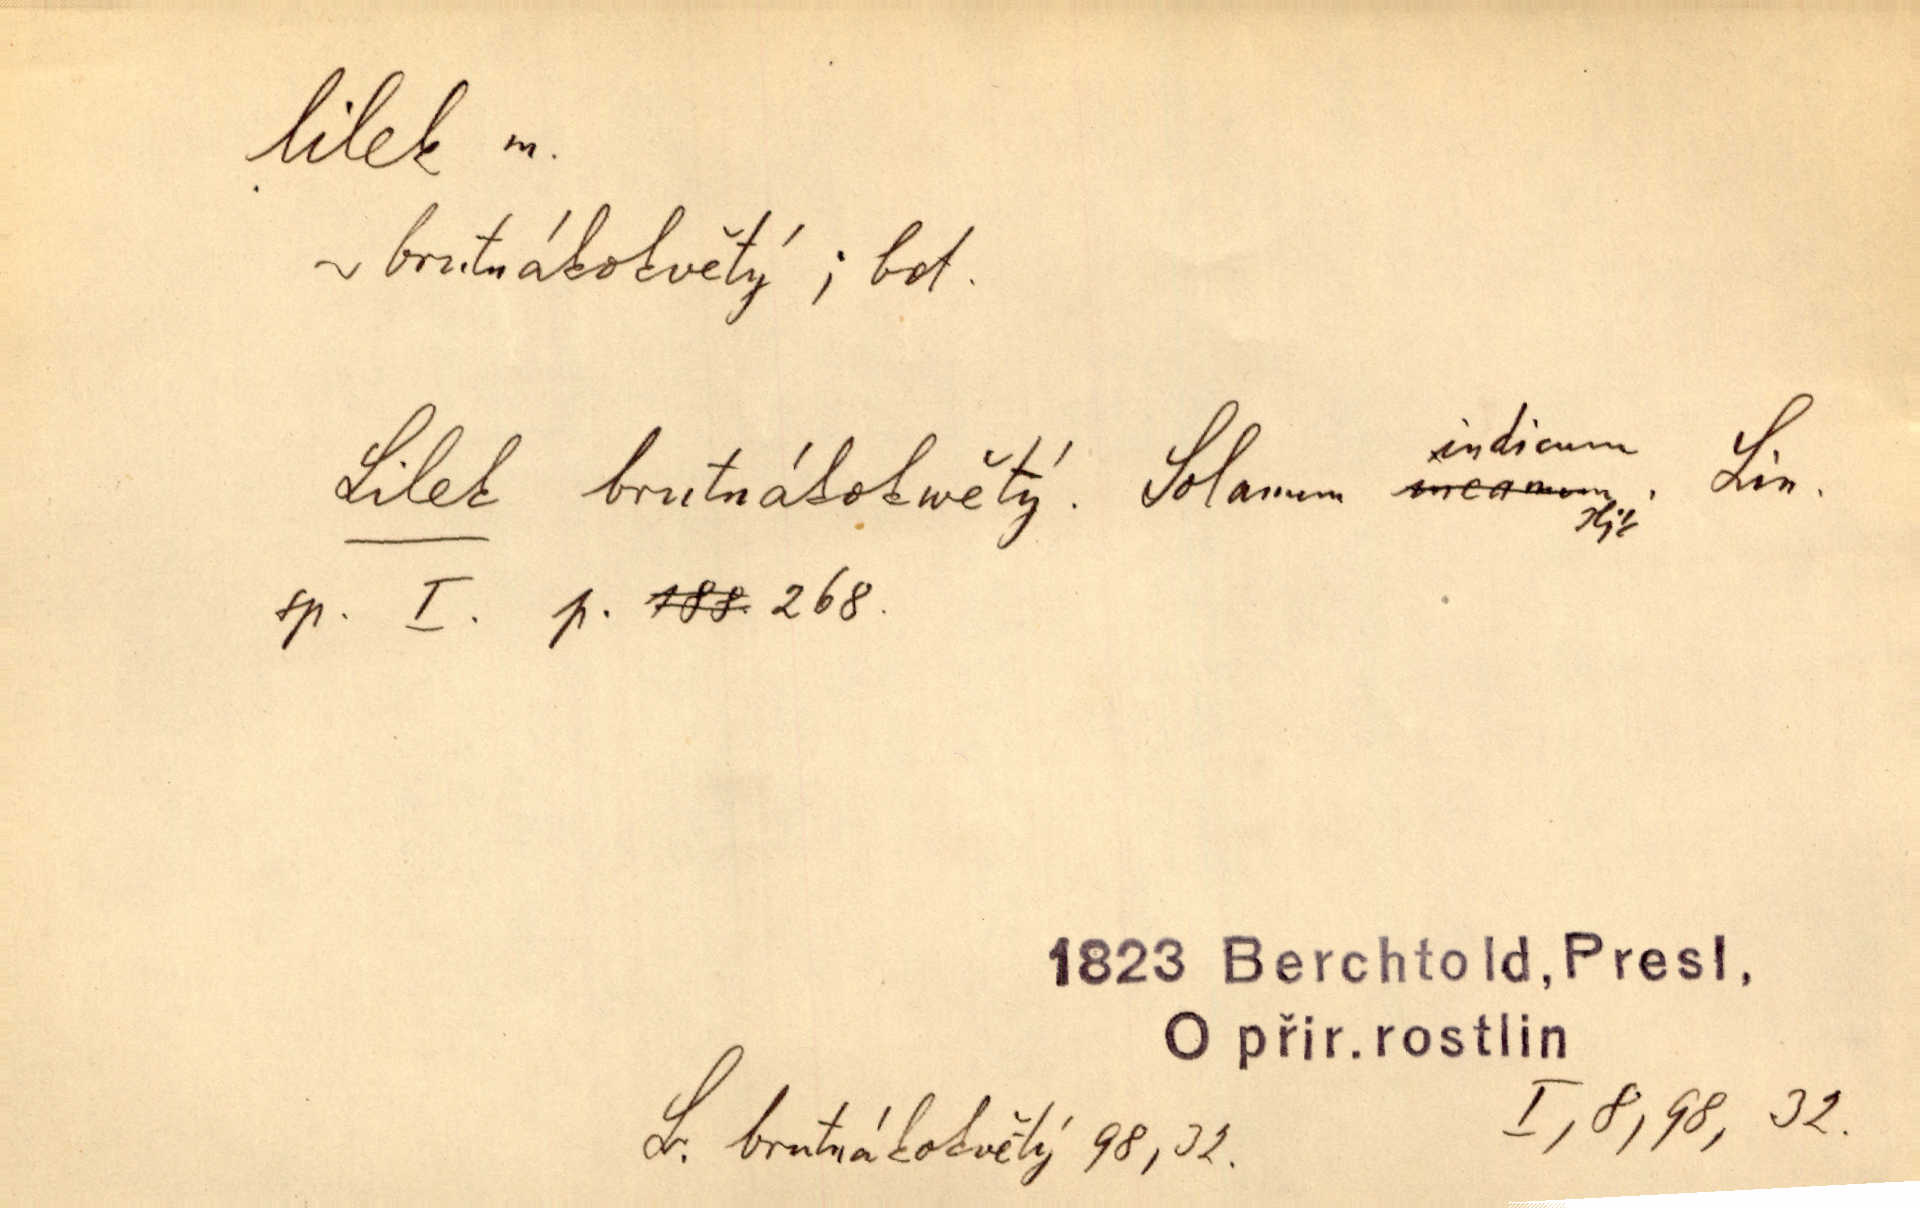 lilek m.
~ brutnákokvětý ; bot.
Lilek brutnákokwětý. Solanum indicum incanum. Lin.
sp. I. p. 188. 268.
1823 Berchtold, Presl,
O přir. rostlin
I, 8, 98, 32.
L. brutnákokvětý 98, 32.